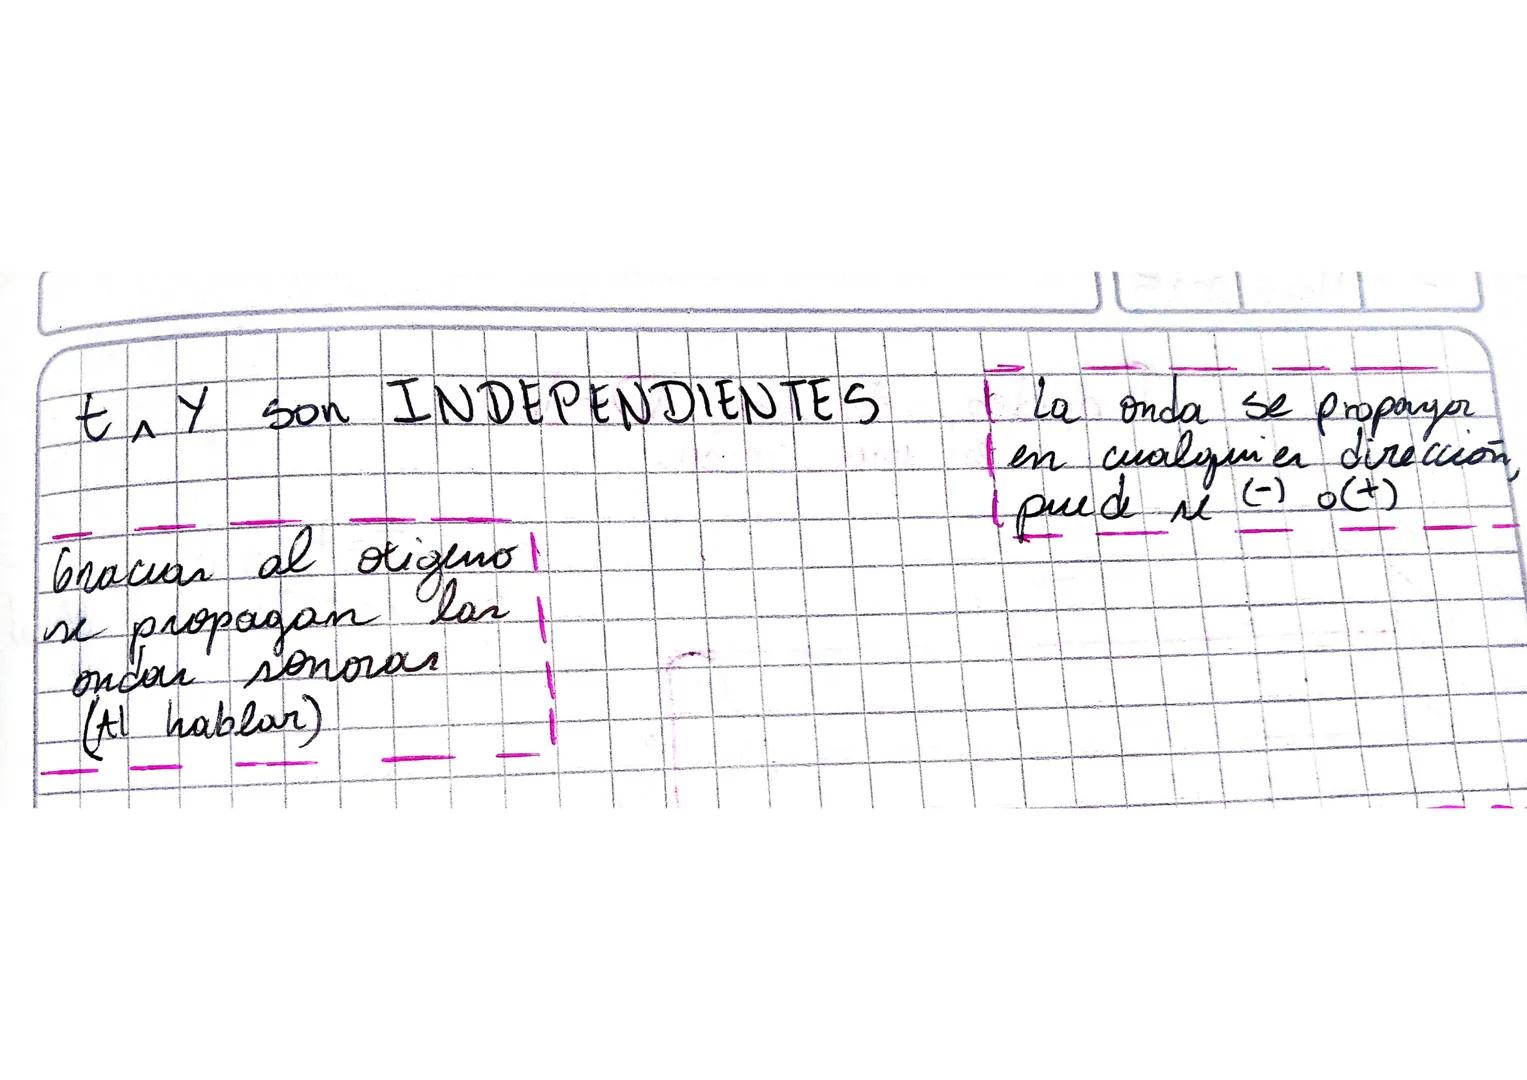 t ∧ Y son INDEPENDIENTES
La onda se propaga
en cualquier dirección,
puede se (-) o(+)
Gracias al oxigeno
se propagan las
ondas sonoras
(Al hablar)